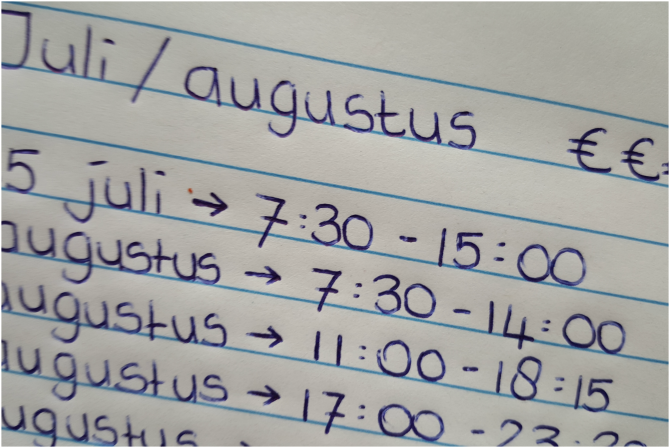 Juli/augustus €€
5 juli → 7:30 - 15:00
augustus → 7:30 - 14:00
augustus → 11:00 - 18:15
augustus → 17:00 -
augustus